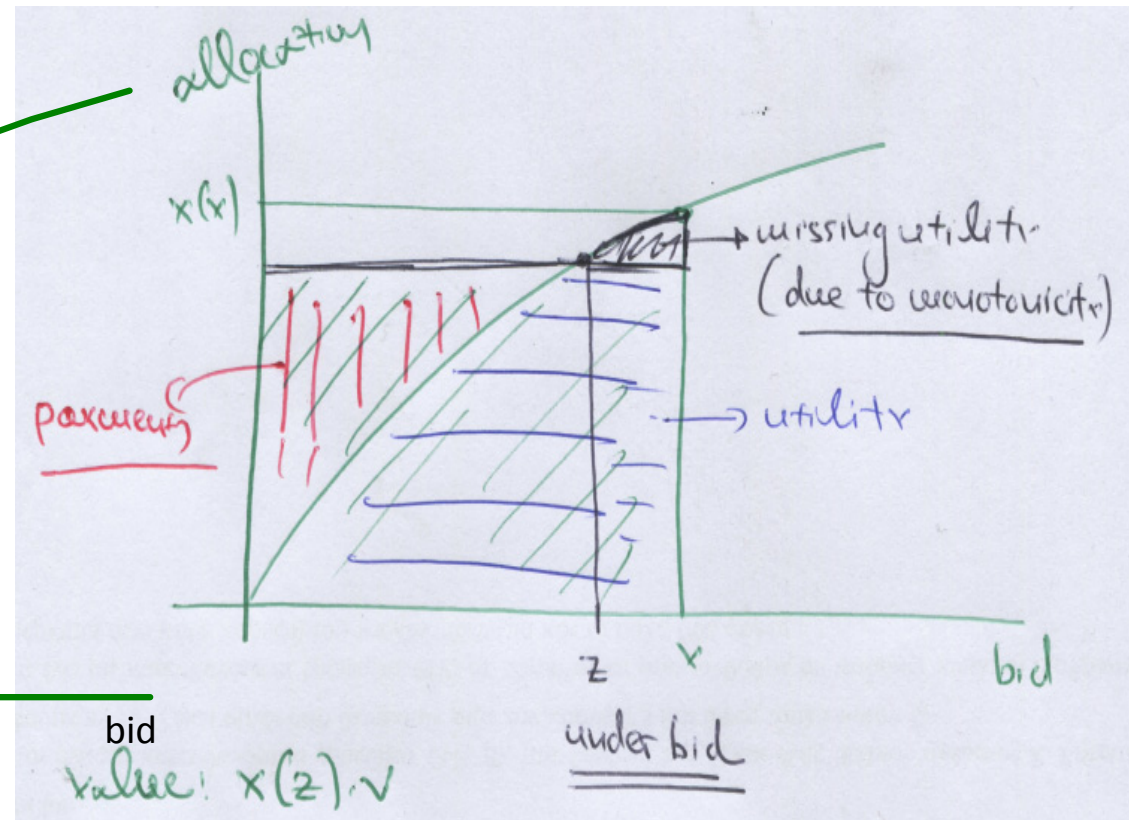 allocation
x(x)
missing utility
(due to monotonicity)
payment
utility
z
v
bid
bid
under bid
value: x(z).v